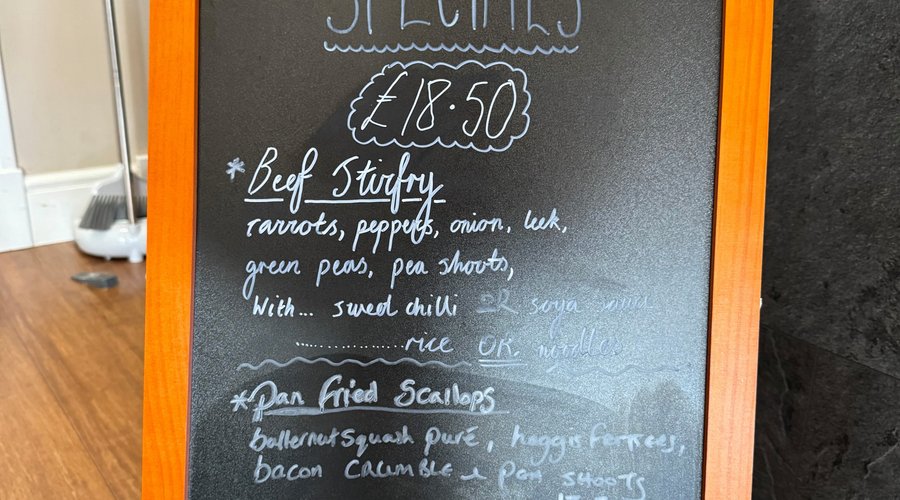 SPECIALS
£18.50
* Beef Stirfry
carrots, peppers, onion, leek,
green peas, pea shoots,
With... sweet chilli OR soya sauce
...............rice OR noodles
* Pan Fried Scallops
butternut squash puré, haggis
bacon CRUMBLE & pea SHOOTS